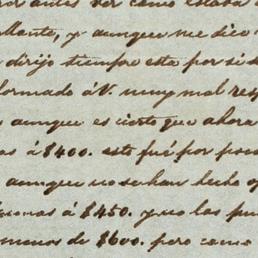 antes ver como estaba
llante, y aunque me dice
dirijo tiempre esta por si s
formado á V. muy mal resp
aunque es cierto que ahora
as á $400. esto fué por poco
aunque no se han hecho o
sionas á $450. y no las pu
menos de $600. pero como